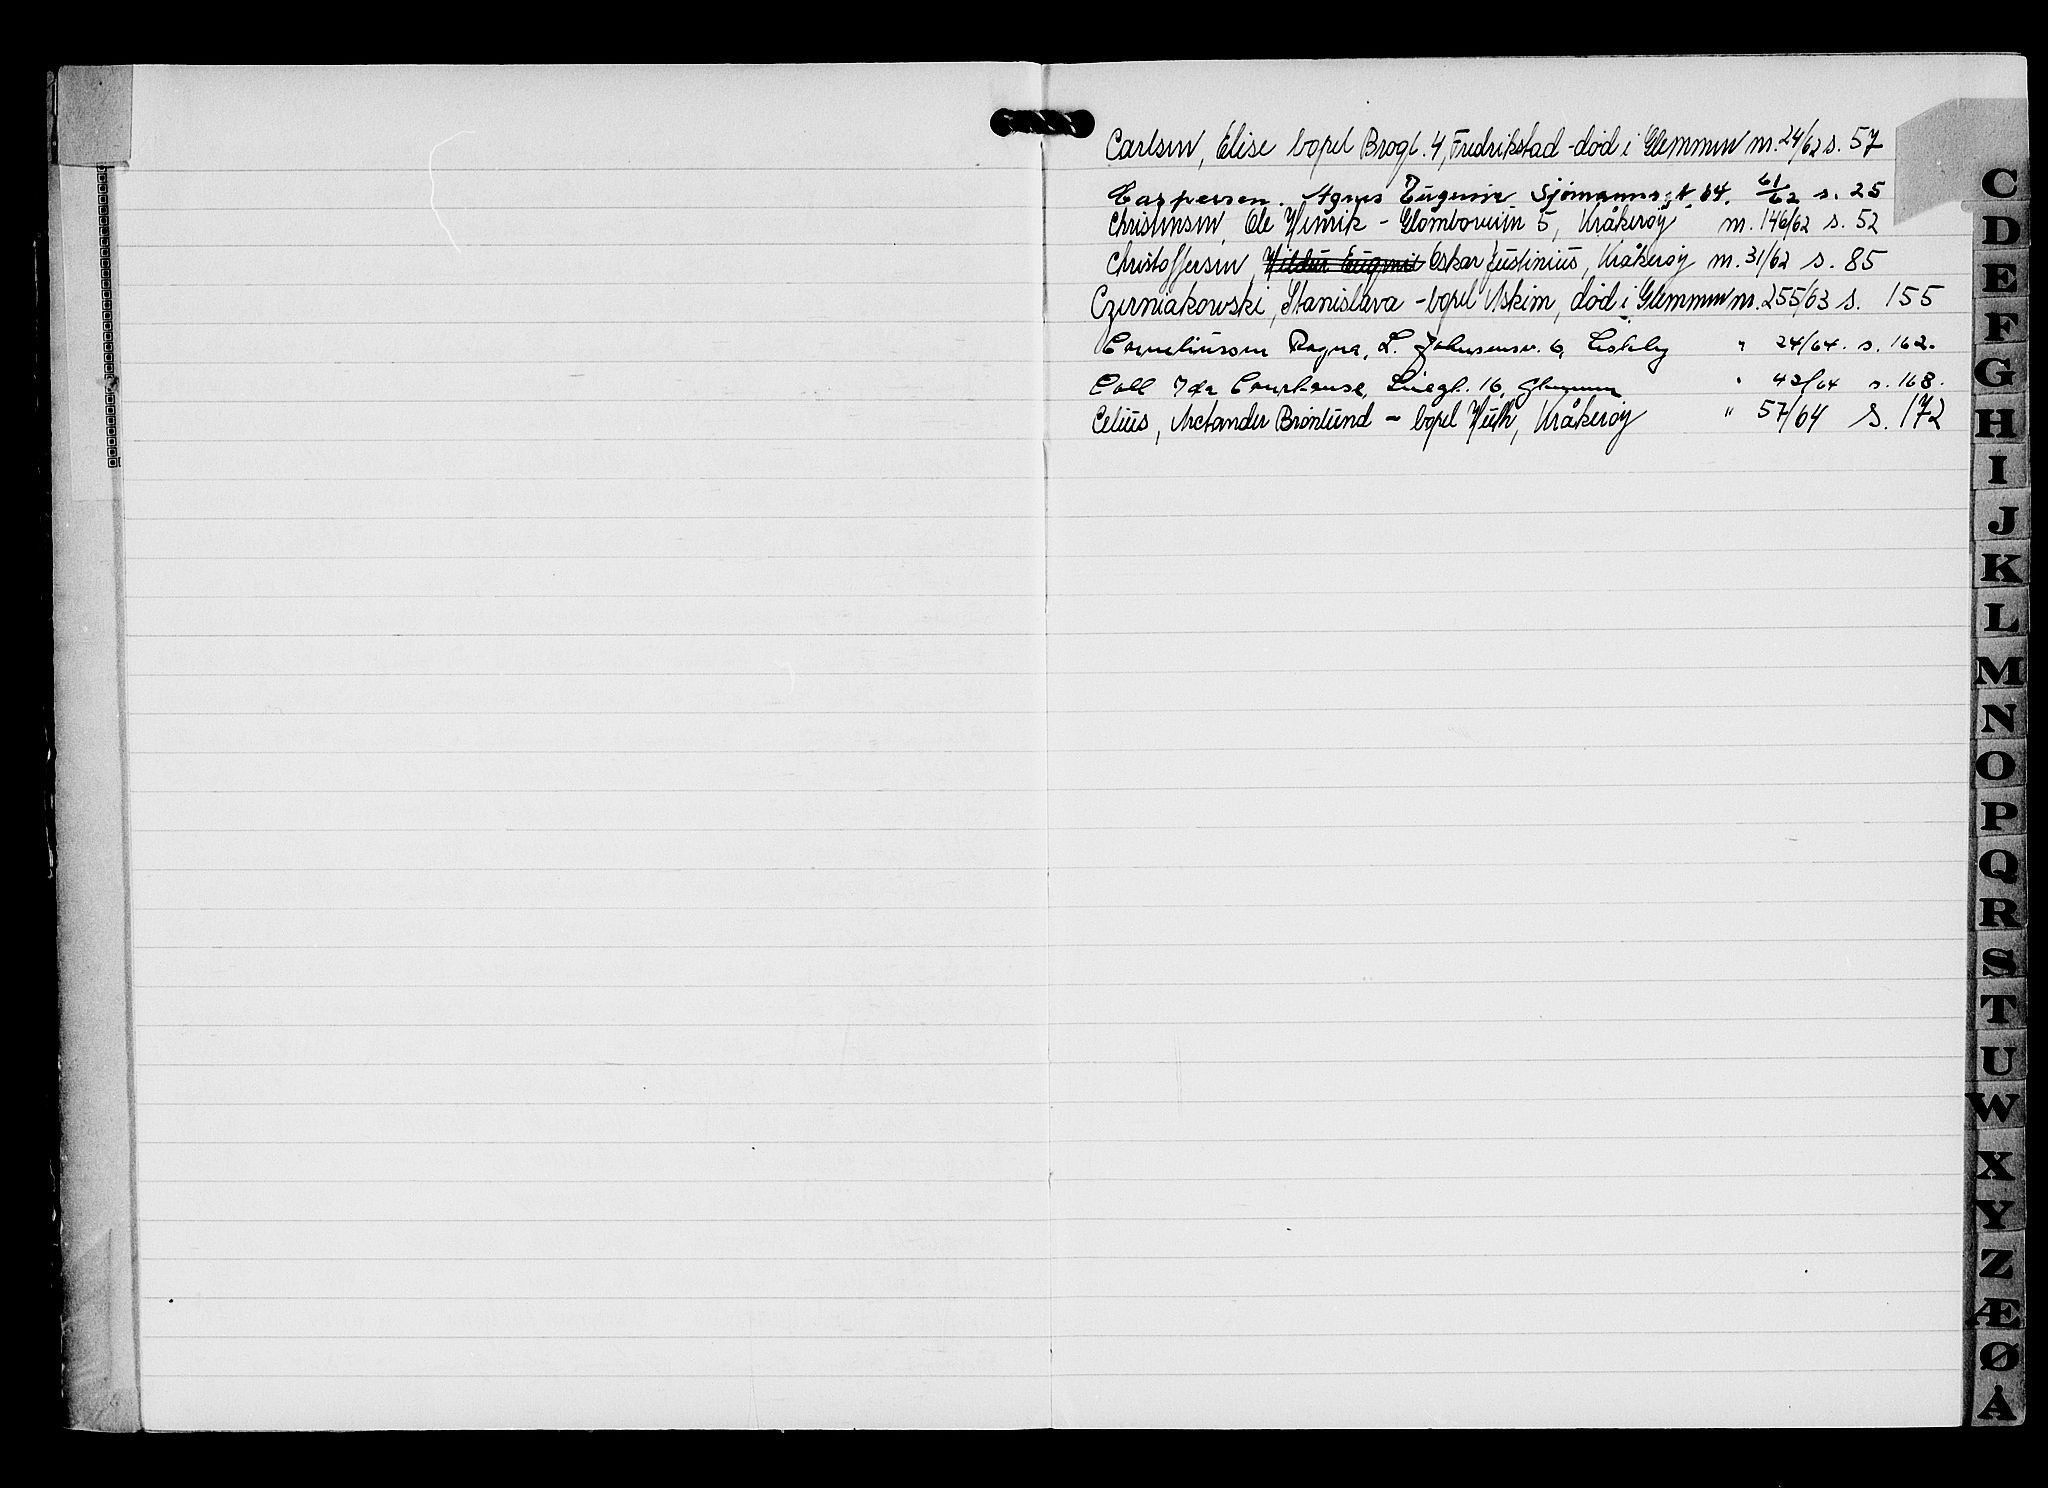 Carlsen, Elise bopel Brogt. 4, Fredrikstad - død i Glemmen nr. 24/62 s. 57
Caspersen. Agnes Eugenie Sjømannsgt. 64. 61/62 s. 25
Christensen, Ole Henrik - Glomboveien 5, Kråkerøy nr. 146/62 s. 52
Christoffersen, Hildur Eugenie Oskar Justinius, Kråkerøy nr. 31/62 s. 85
Czerniakowski, Stanislava - bopel Askim, død i Glemmen nr. 255/63 s. 155
Corneliussen Ragna, L. Johnsensv. 6, Lisleby " 24/64. s. 162.
Coll Ida Lilegt. 16, Glemmen " 42/64 s. 168.
Celius, Arctander Brønlund - bopel Huth, Kråkerøy " 57/64 s. 172
C
D
E
F
G
H
I
J
K
L
M
N
O
P
Q
R
S
T
U
W
X
Y
Z
Æ
Ø
Å